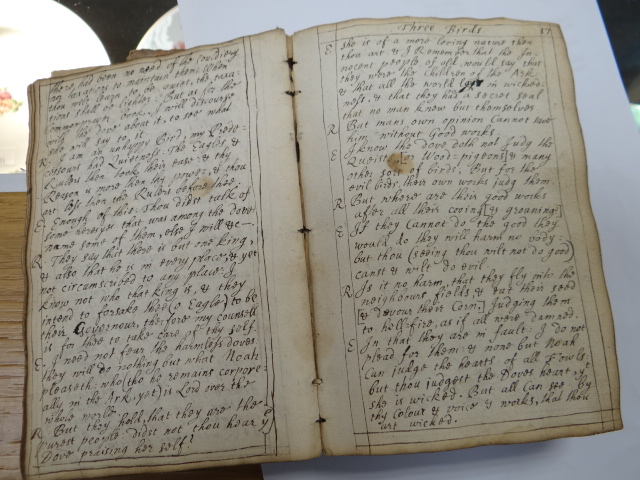 there had been no need of the
for to maintain them. When
thou wilt learn to be quiet the
shall be lighter. But as for the
I will discourse
with the Dove about it, to see what
she will say to it.
R. I am an unhappy Bird, my Prede-
cessours had Quietness. The Eagles &
Rulers then took their ease: & thy
Reason is more then thy power, & thou
art less then the Rulers before thee.
E. Enough of this. Thou didst talk of
some heresyes that was among the doves
name some of them, else I will &c—
R. They say that there is but one king,
& also that he is in every place, & yet
not circumscribed to any place. I
know not who that king is, & they
intend to forsake thee (o Eagle) to be
their Governour, therefore my counsell
is for thee to take care of thy self.
E. I need not fear the harmless doves.
they will do nothing but what Noah
pleaseth, who (tho he remains corpore-
ally in the Ark, yet) is Lord over the
whole world.
R. But they hold, that they are the
purest people. didst not thou hear ye
Dove praising her self?
Three Birds 57.
E. She is of a more loving nature then
thou art & I Remember that the In-
nocent people of old would say that
they were the children of the Ark
& that all the world in wicked-
ness, & that they had a secret seal
that no man know but themselves
R. But mans own opinion cannot save
him without Good works.
E. I know the dove doth not Judg the
Queist [or Wood=pigeons] & many
other sort of birds. But for the
evil birds, their own works judg them
R. But where are their good works
after all their cooing [& groaning]
E. If they Cannot do the good they
would do they will harm no body:
but thou (seeing thou wilt not do good)
canst & wilt do evil.
R. Is it no harm, that they fly into the
neighbours fields, & eat their seed
[& devour their Corn,] Judging them
to hell-fire, as if all were damned.
E. In that they are in fault: I do not
plead for them: & none but Noah
can judge the hearts of all Fowls,
but thou judgest the Doves heart, yt
she is wicked. But all Can see by
thy Colour & voice & works, that thou
art wicked.